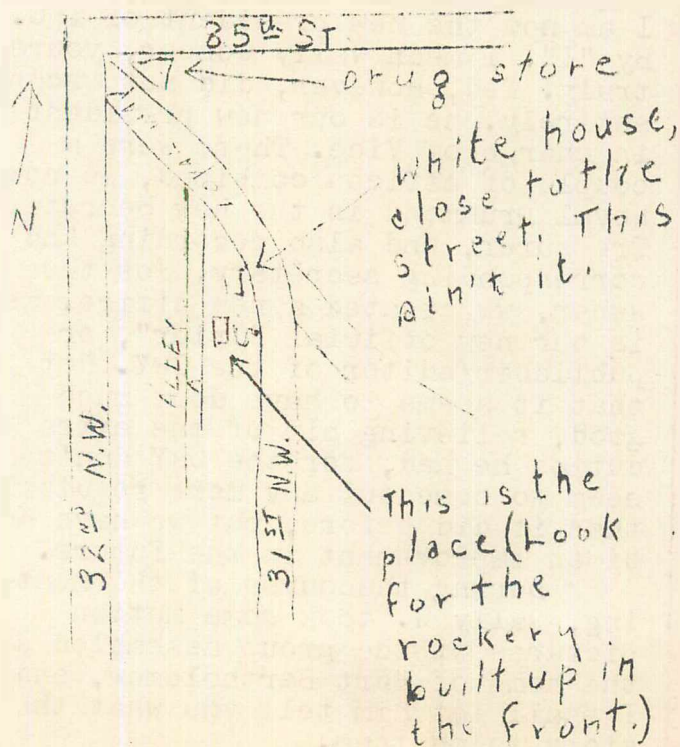 85th ST
drug store
N
white house,
close to the
street. This
ain't it.
ALLEY
32nd N.W.
31ST N.W.
This is the
place (Look
for the
rockery
built up in
the front)